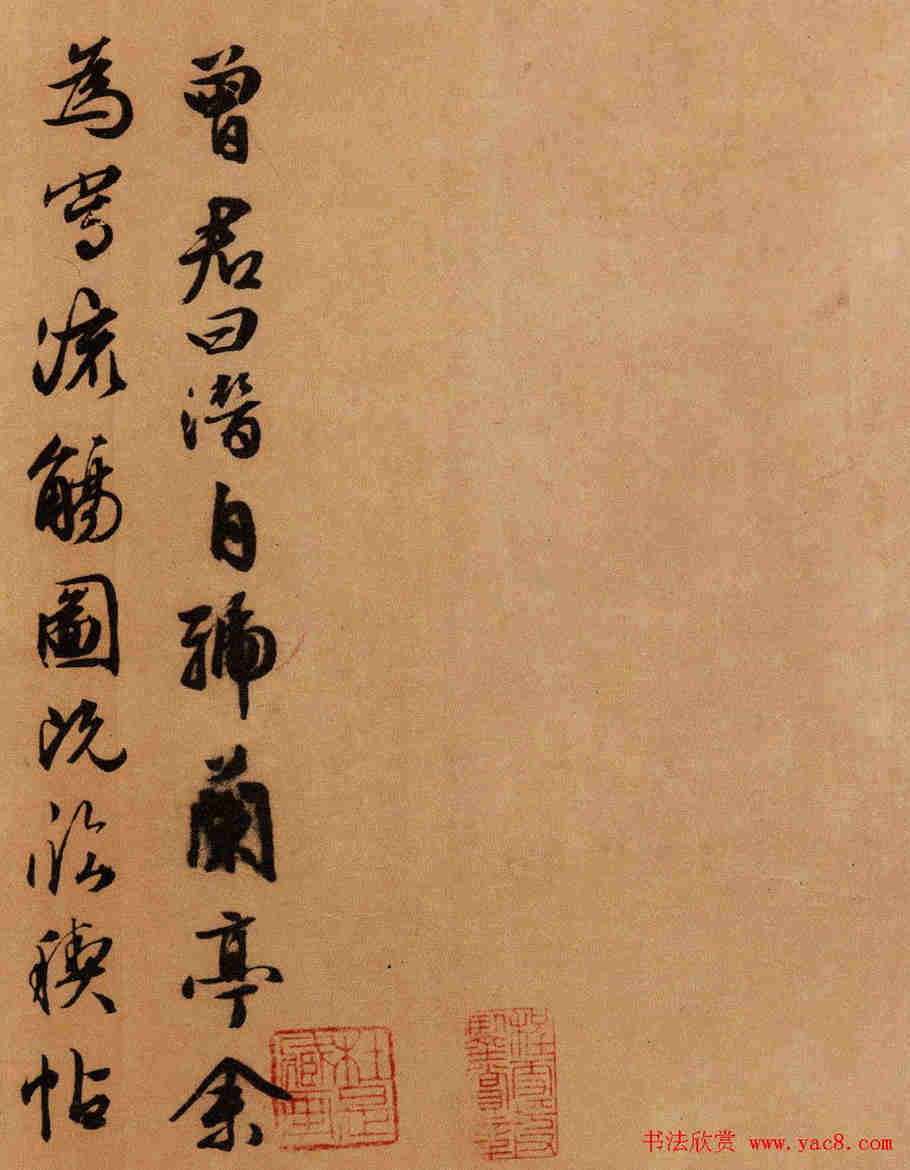 曾君曰潛自號蘭亭余
為寫流觴圖既臨稧帖
书法欣赏 www.yac8.com